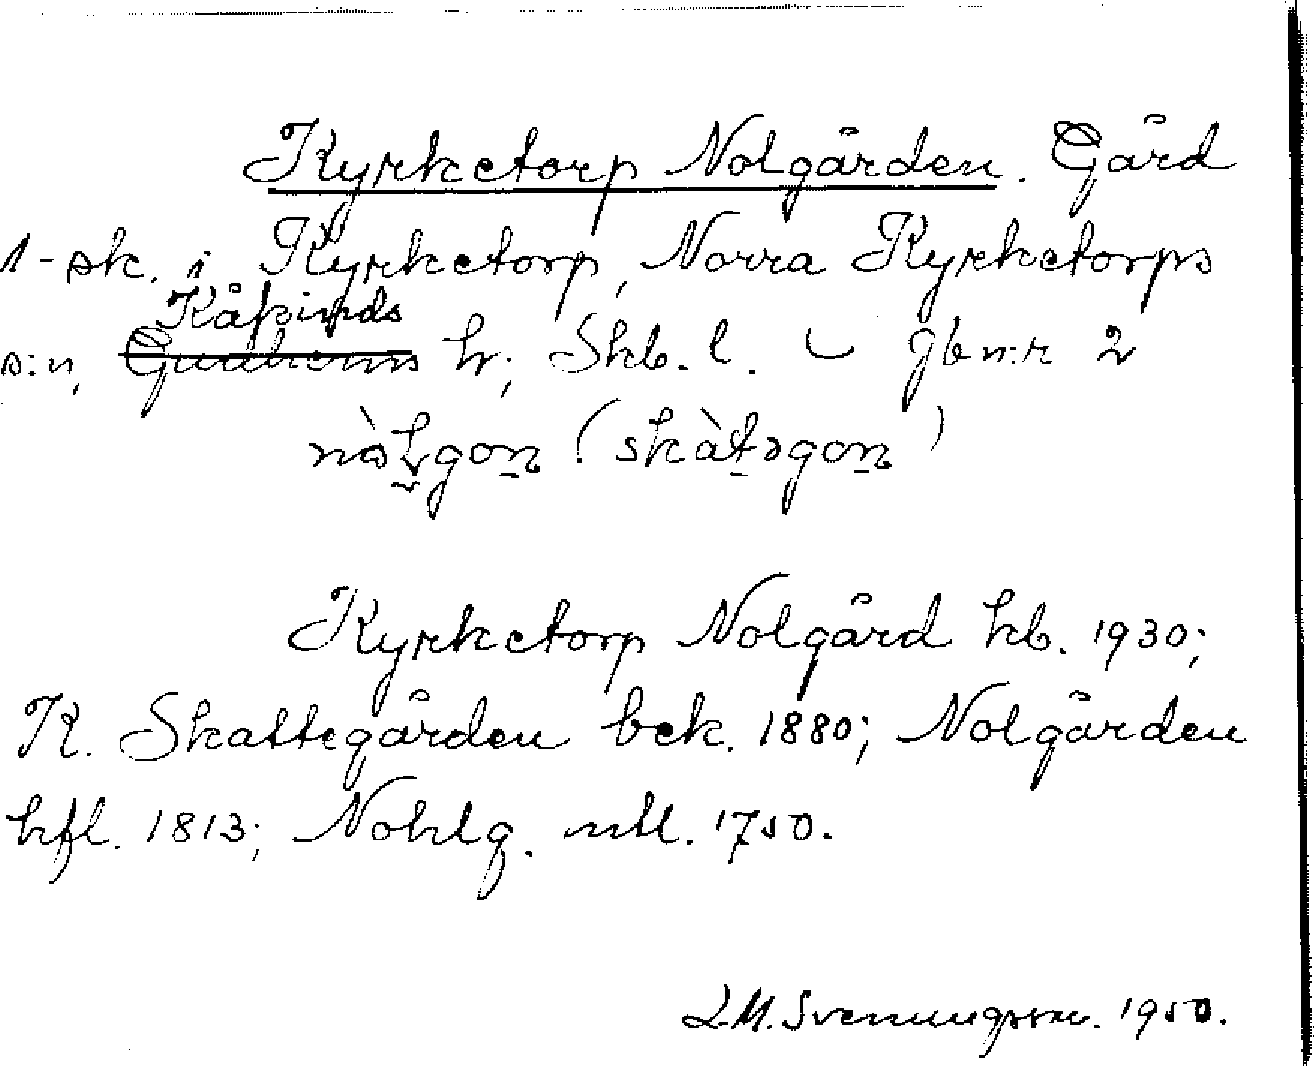 Kyrketorp Nolgården. Gård
1-sk. i Kyrketorp, Norra Kyrketorps
Kåkinds
s:n, Gudhems h; Skb. l. ‿ gbn:r 2
nòḷgoṉ (skàt̠əgoṉ)
Kyrketorp Nolgård kb. 1930;
K. Skattegården bek. 1880; Nolgården
hfl. 1813; Nohlg. mtl. 1750.
L.M. Svenungsson. 1950.